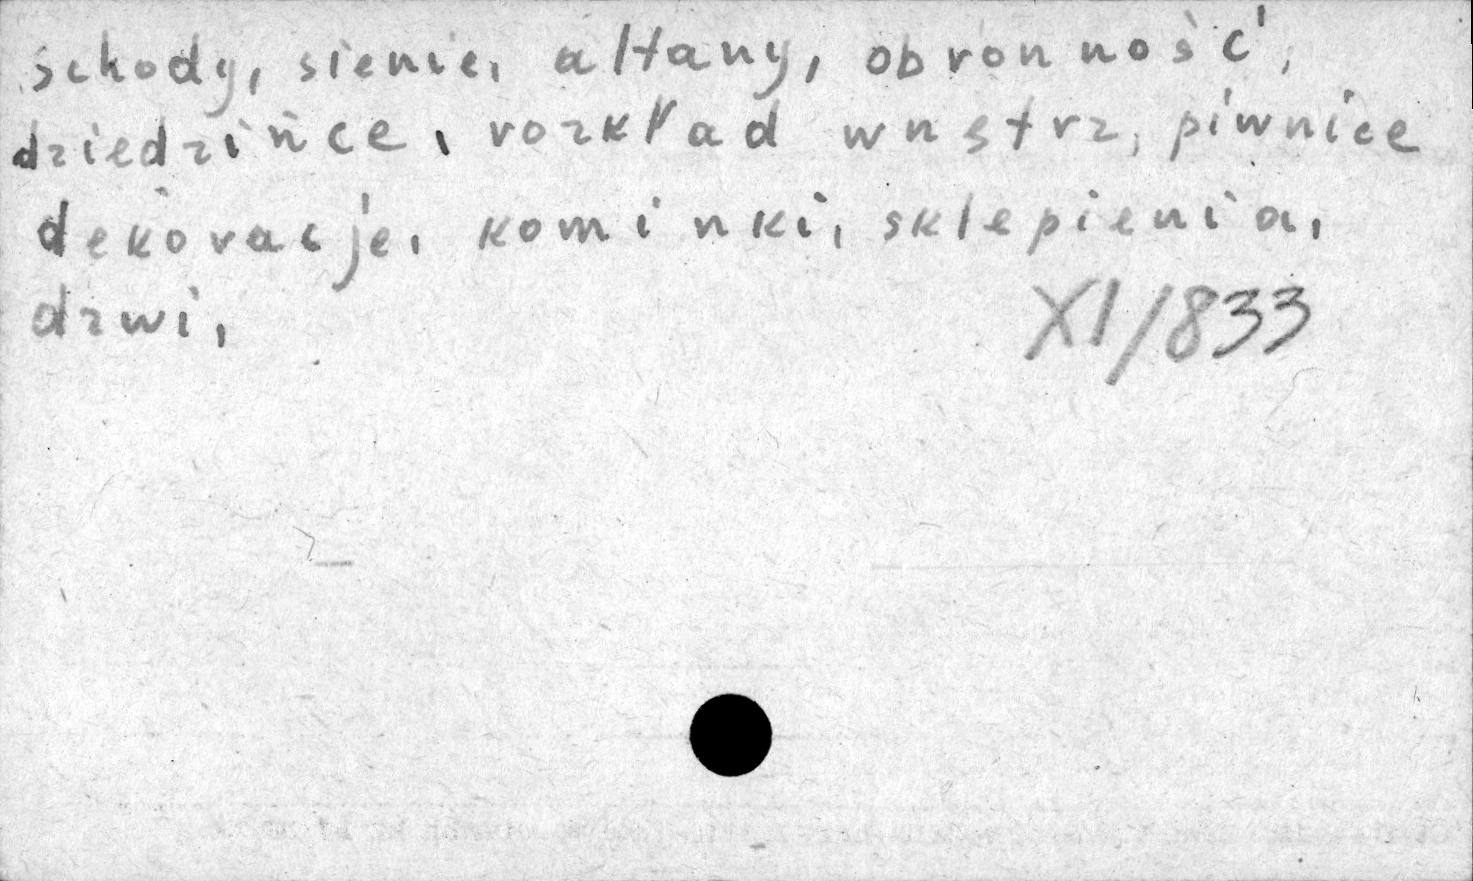 schody, sienie, altany, obronność,
dziedzińce, rozkład wnętrz, piwnice
dekoracje, kominki, sklepienia,
drzwi,
XI/833